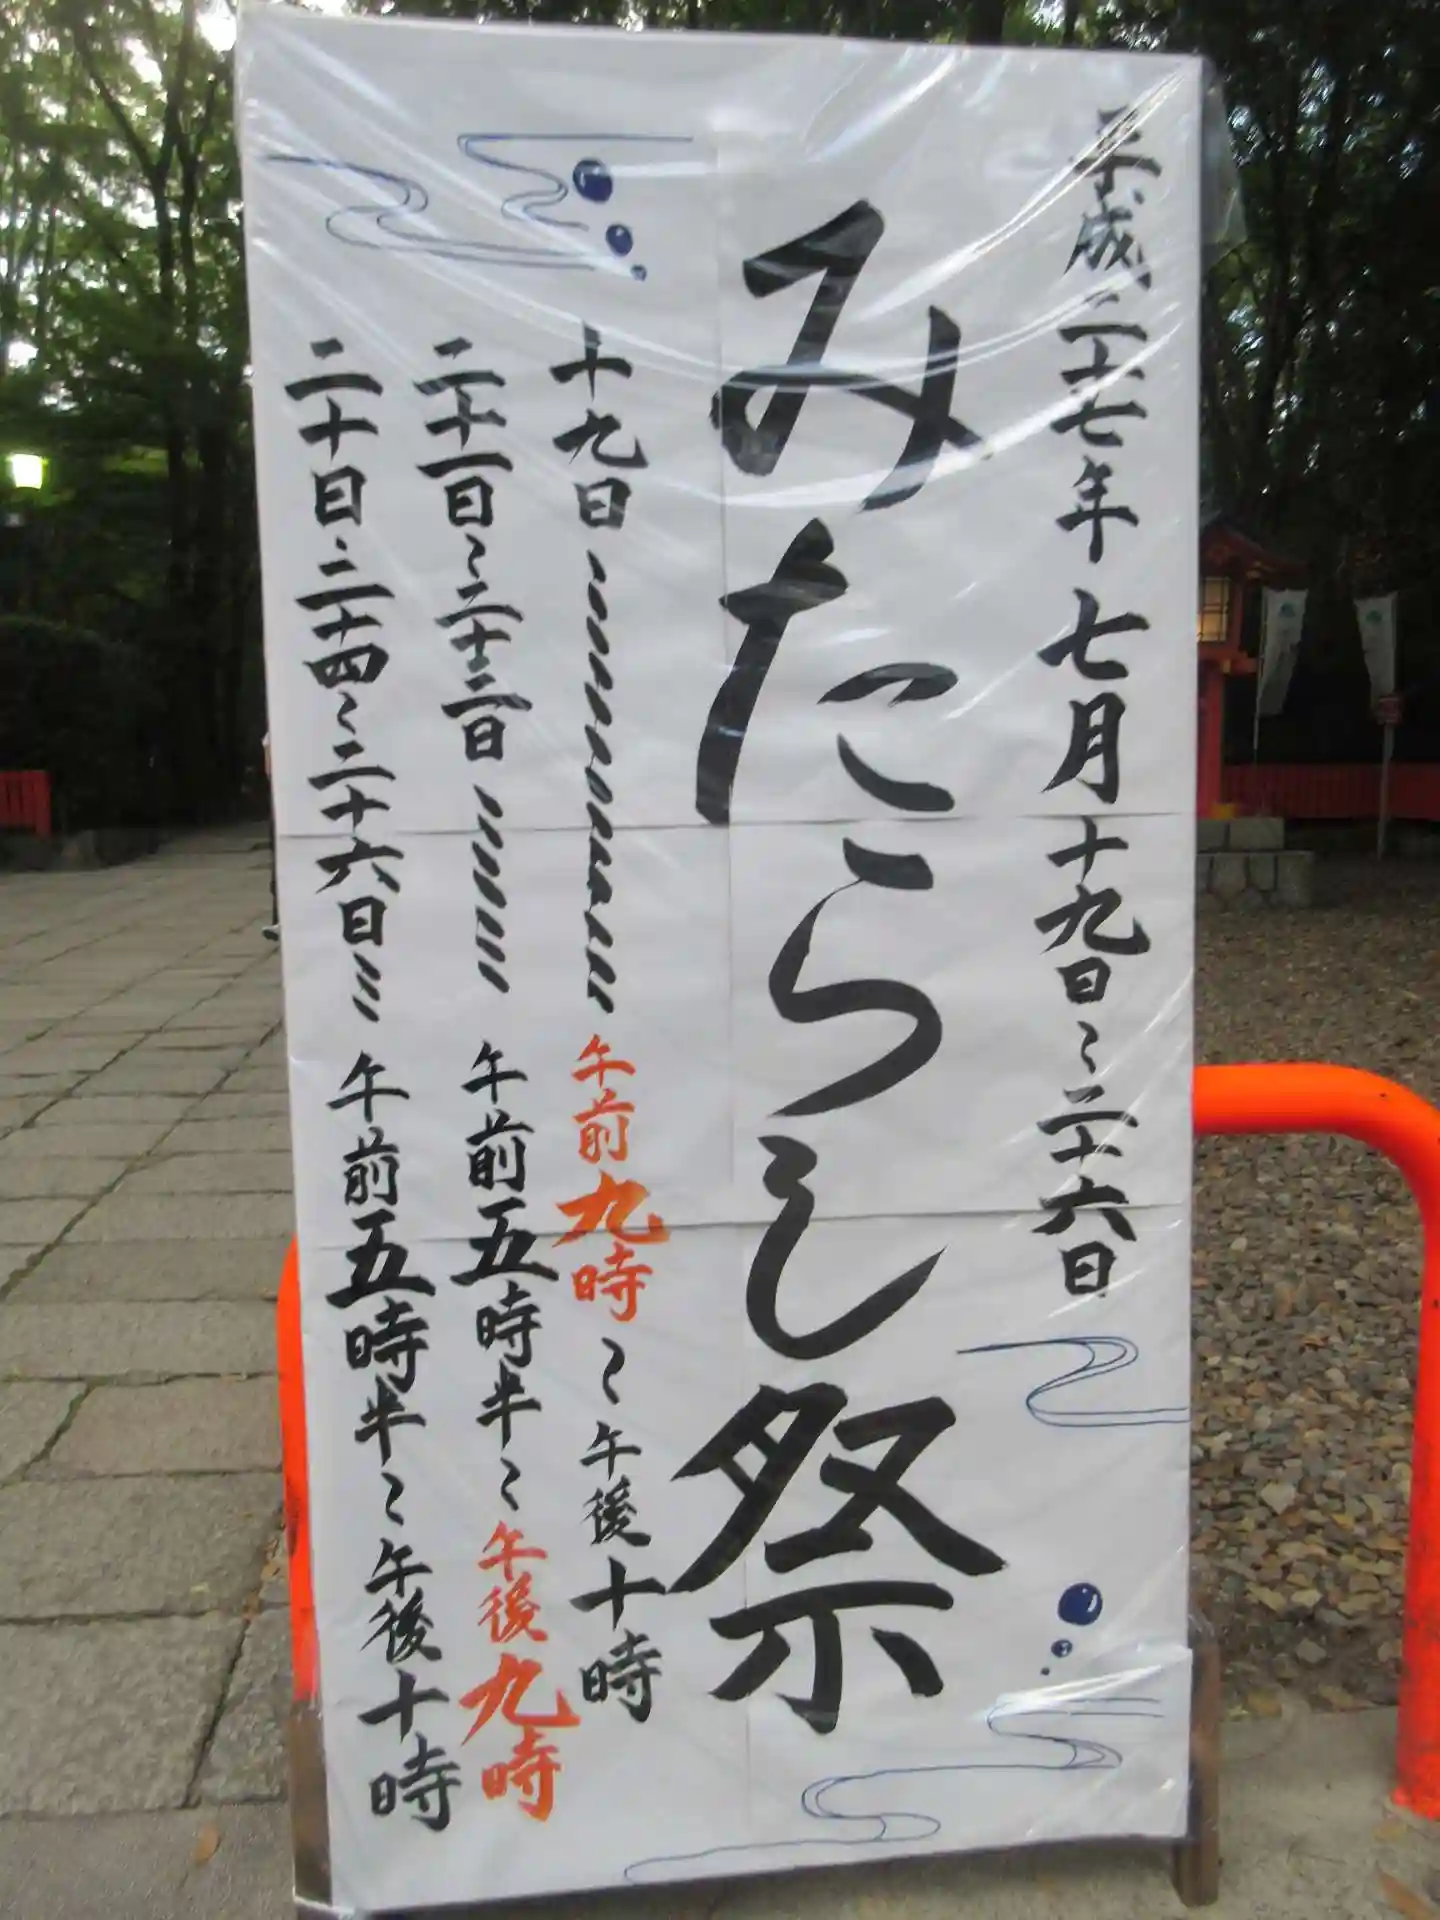 平成二十七年 七月十九日〜二十六日
みたらし祭
十九日〃〃〃〃〃〃〃〃〃〃〃〃 午前九時〜午後十時
二十一日〜二十三日〃〃〃〃〃〃 午前五時半〜午後九時
二十日・二十四〜二十六日〃〃 午前五時半〜午後十時